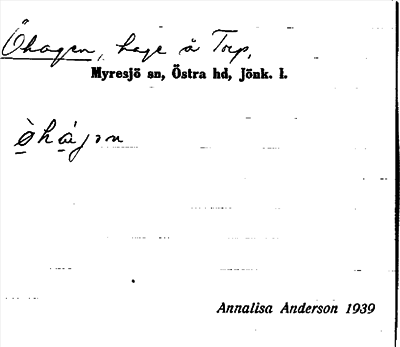 Öhagen, hage å Torp,
Myresjö sn, Östra hd, Jönk. l.
Annalisa Anderson 1939